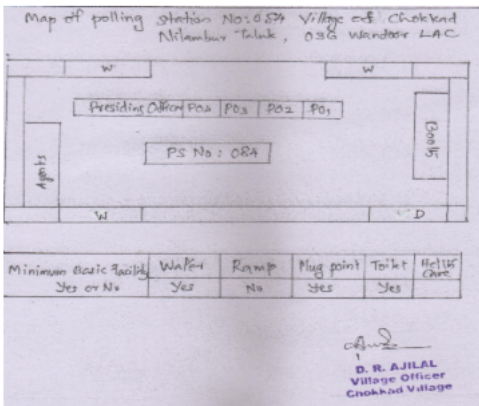 Map of polling station No: 084 Village of Chokkad
Nilambur Taluk, 036 Wandoor LAC
W W
Presiding Officer PO4 PO3 PO2 PO1
PS No: 084
Agents
Booth
W D
Minimum Basic Facility Water Ramp Plug point Toilet Helth Care
Yes or No Yes No Yes Yes
D. R. AJILAL
Village Officer
Chokkad Village